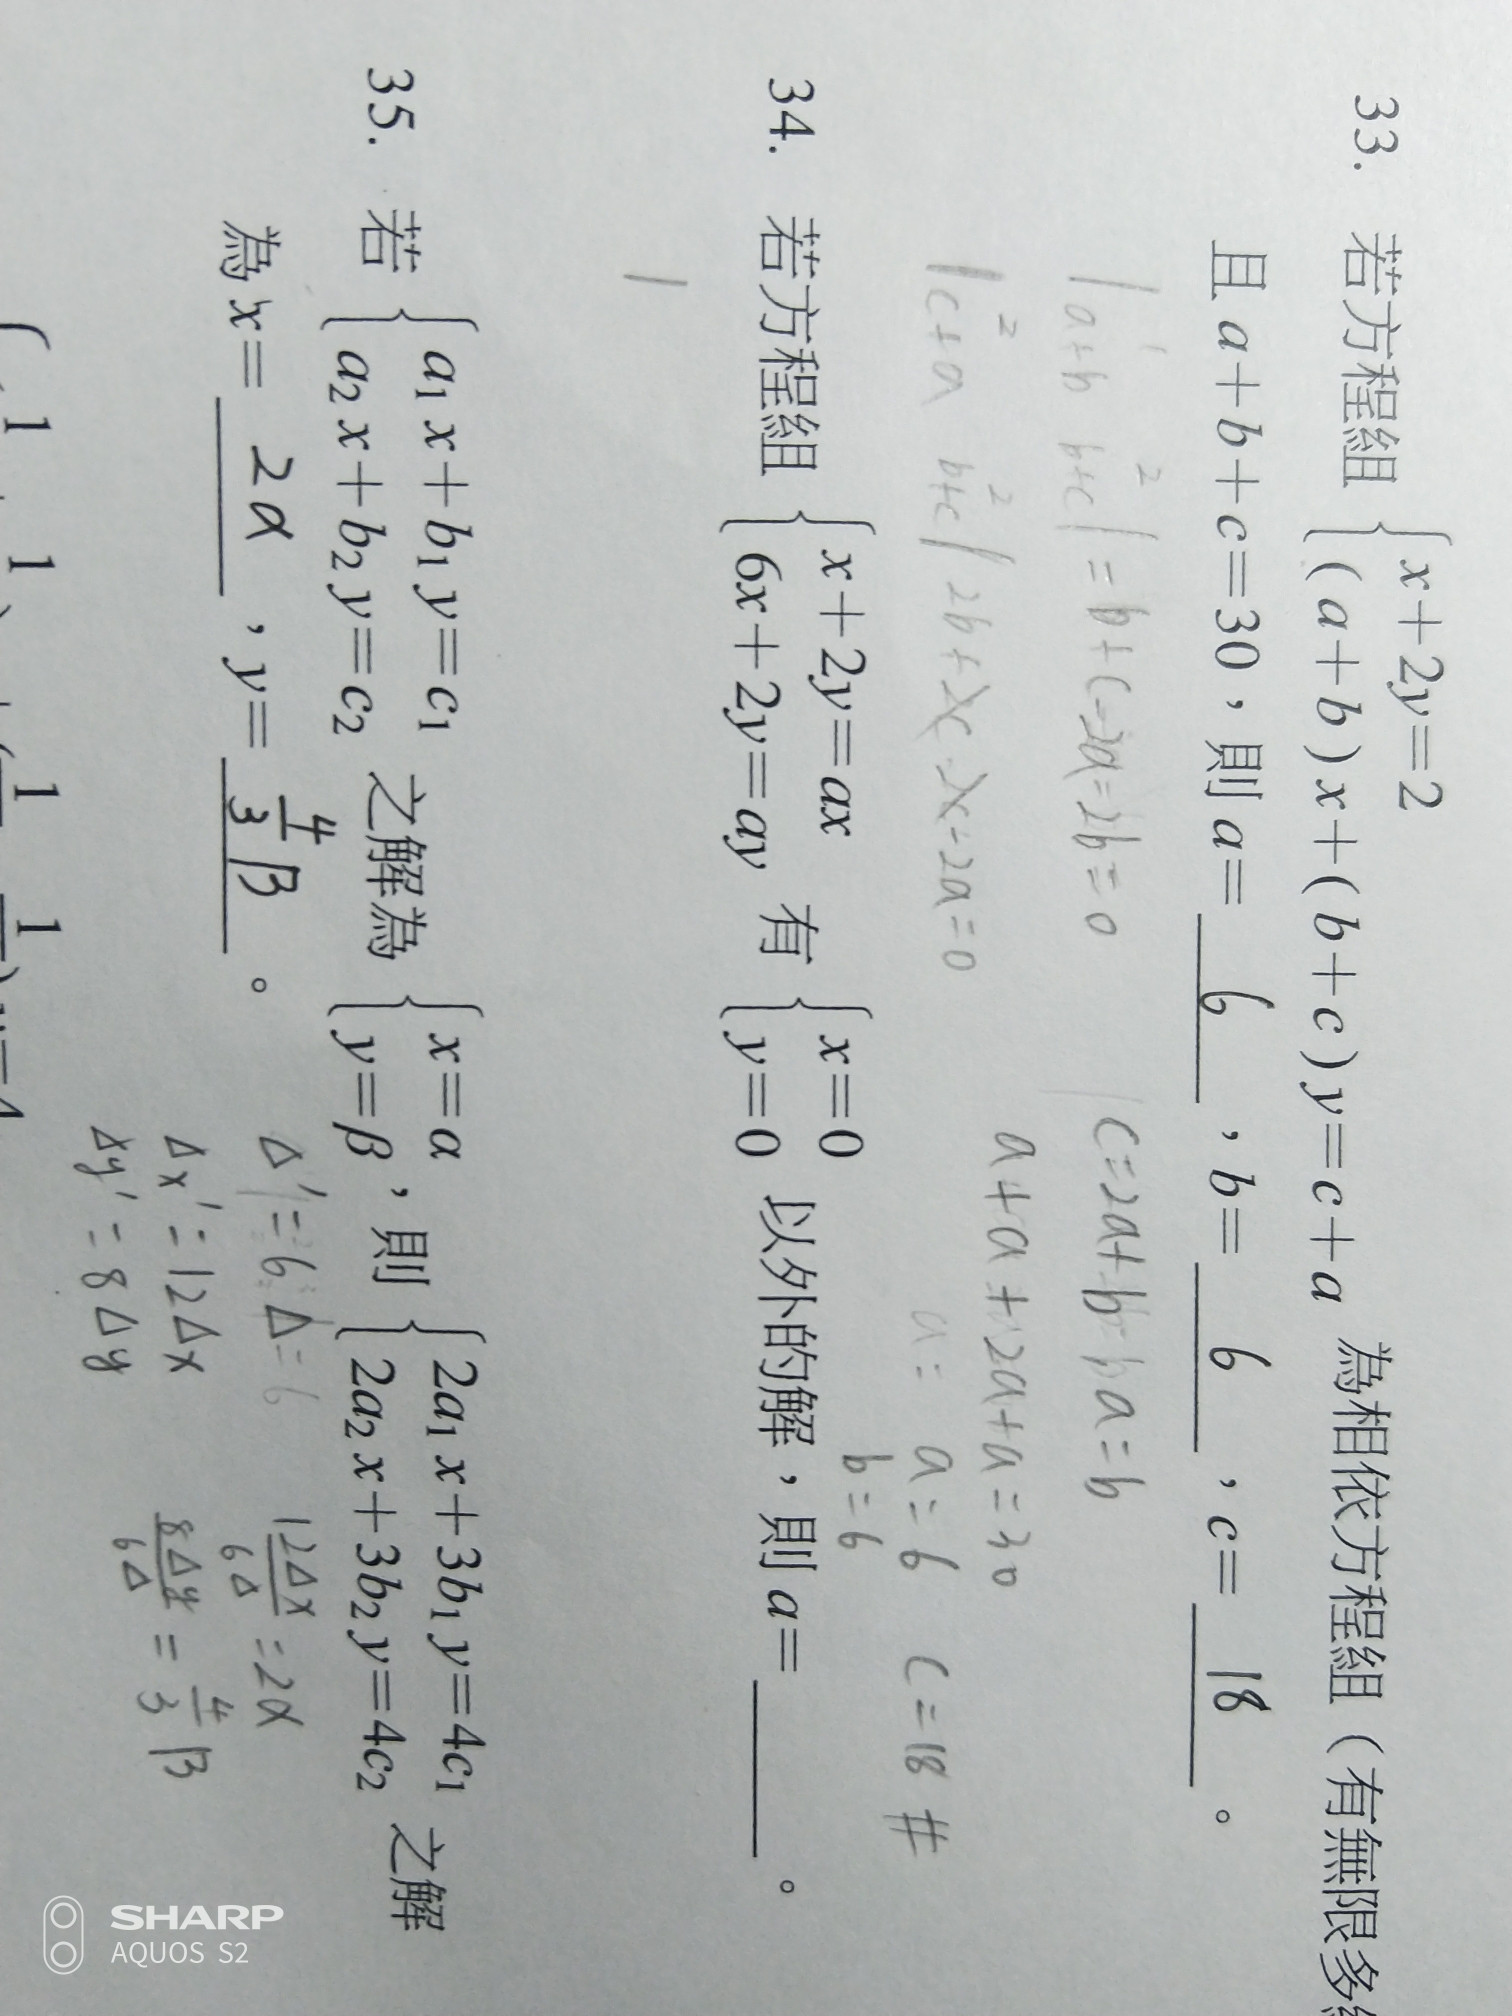 33. 若方程組 { x+2y=2
(a+b)x+(b+c)y=c+a 為相依方程組(有無限多
且 a+b+c=30,則 a= 6 ,b= 6 ,c= 18 。
| 1 2
a+b b+c | = b+c-2a-2b=0
c=2a+b=b a=b
| 2 2
c+a b+c | 2b+2c-2c-2a=0
a+a+2a+a=30
a= a=6 c=18 #
b=6
34. 若方程組 { x+2y=ax
6x+2y=ay 有 { x=0
y=0 以外的解,則 a= ______ 。
35. 若 { a₁x+b₁y=c₁
a₂x+b₂y=c₂ 之解為 { x=α
y=β ,則 { 2a₁x+3b₁y=4c₁
2a₂x+3b₂y=4c₂ 之解
為 x= 2α ,y= 4/3 β 。
Δ'=6·Δ=6
Δx'=12Δx
Δy'=8Δy
12Δx/6Δ =2α
8Δy/6Δ = 4/3 β
SHARP
AQUOS S2